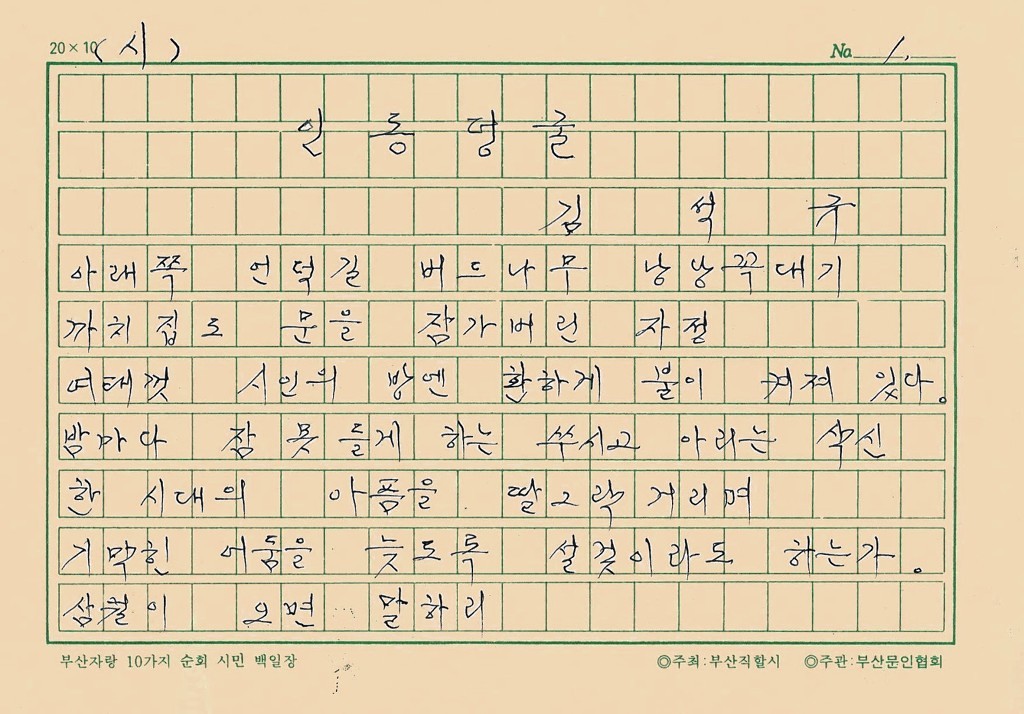 20×10 (시) No 1.
인 동 덩 굴
김 석 규
아래쪽 언덕길 버드나무 낭낭꼭대기
까치집도 문을 잠가버린 자정
여태껏 시인의 방엔 환하게 불이 켜져 있다.
밤마다 잠 못 들게 하는 쑤시고 아리는 삭신
한 시대의 아픔을 딸그락거리며
기막힌 어둠을 늦도록 설겆이라도 하는가.
오면 말하리
부산자랑 10가지 순회 시민 백일장 ◎주최:부산직할시 ◎주관:부산문인협회